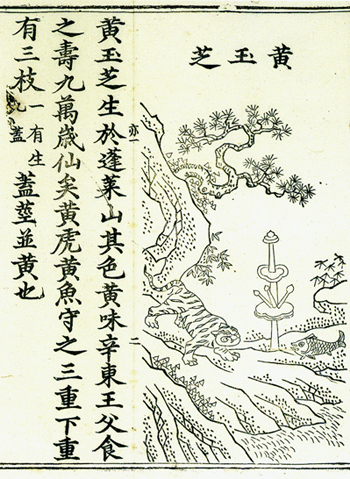 黄玉芝
一
二
黄玉芝生於蓬萊山其色黄味辛東王父食
之壽九萬歲仙矣黄虎黄魚守之三重下重
有三枝一有生蓋蓋莖並黄也